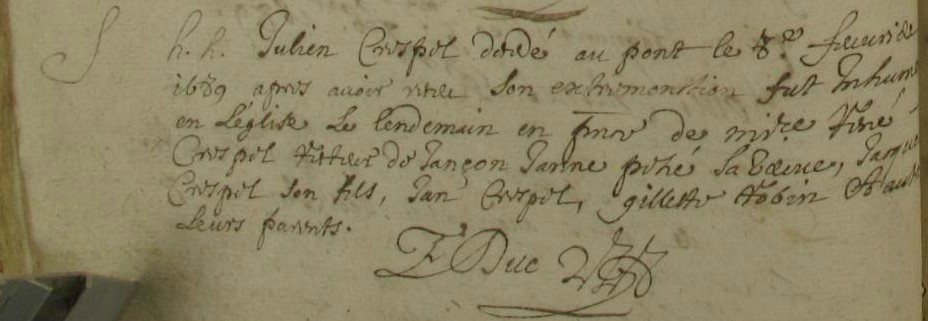 S h. h. Julien Crespel dcdé au pont le 8.e feuuri de
1689 apres auoir receu son extremonction fut Inhum
en L'église Le lendemain en pnce de mire René
Crespel Recteur de Jançon Janne pihé sa Veuue, Jaque
Crespel son fils, Jan Crespel, gillette Robin Et aut
Leurs parents.
Duc